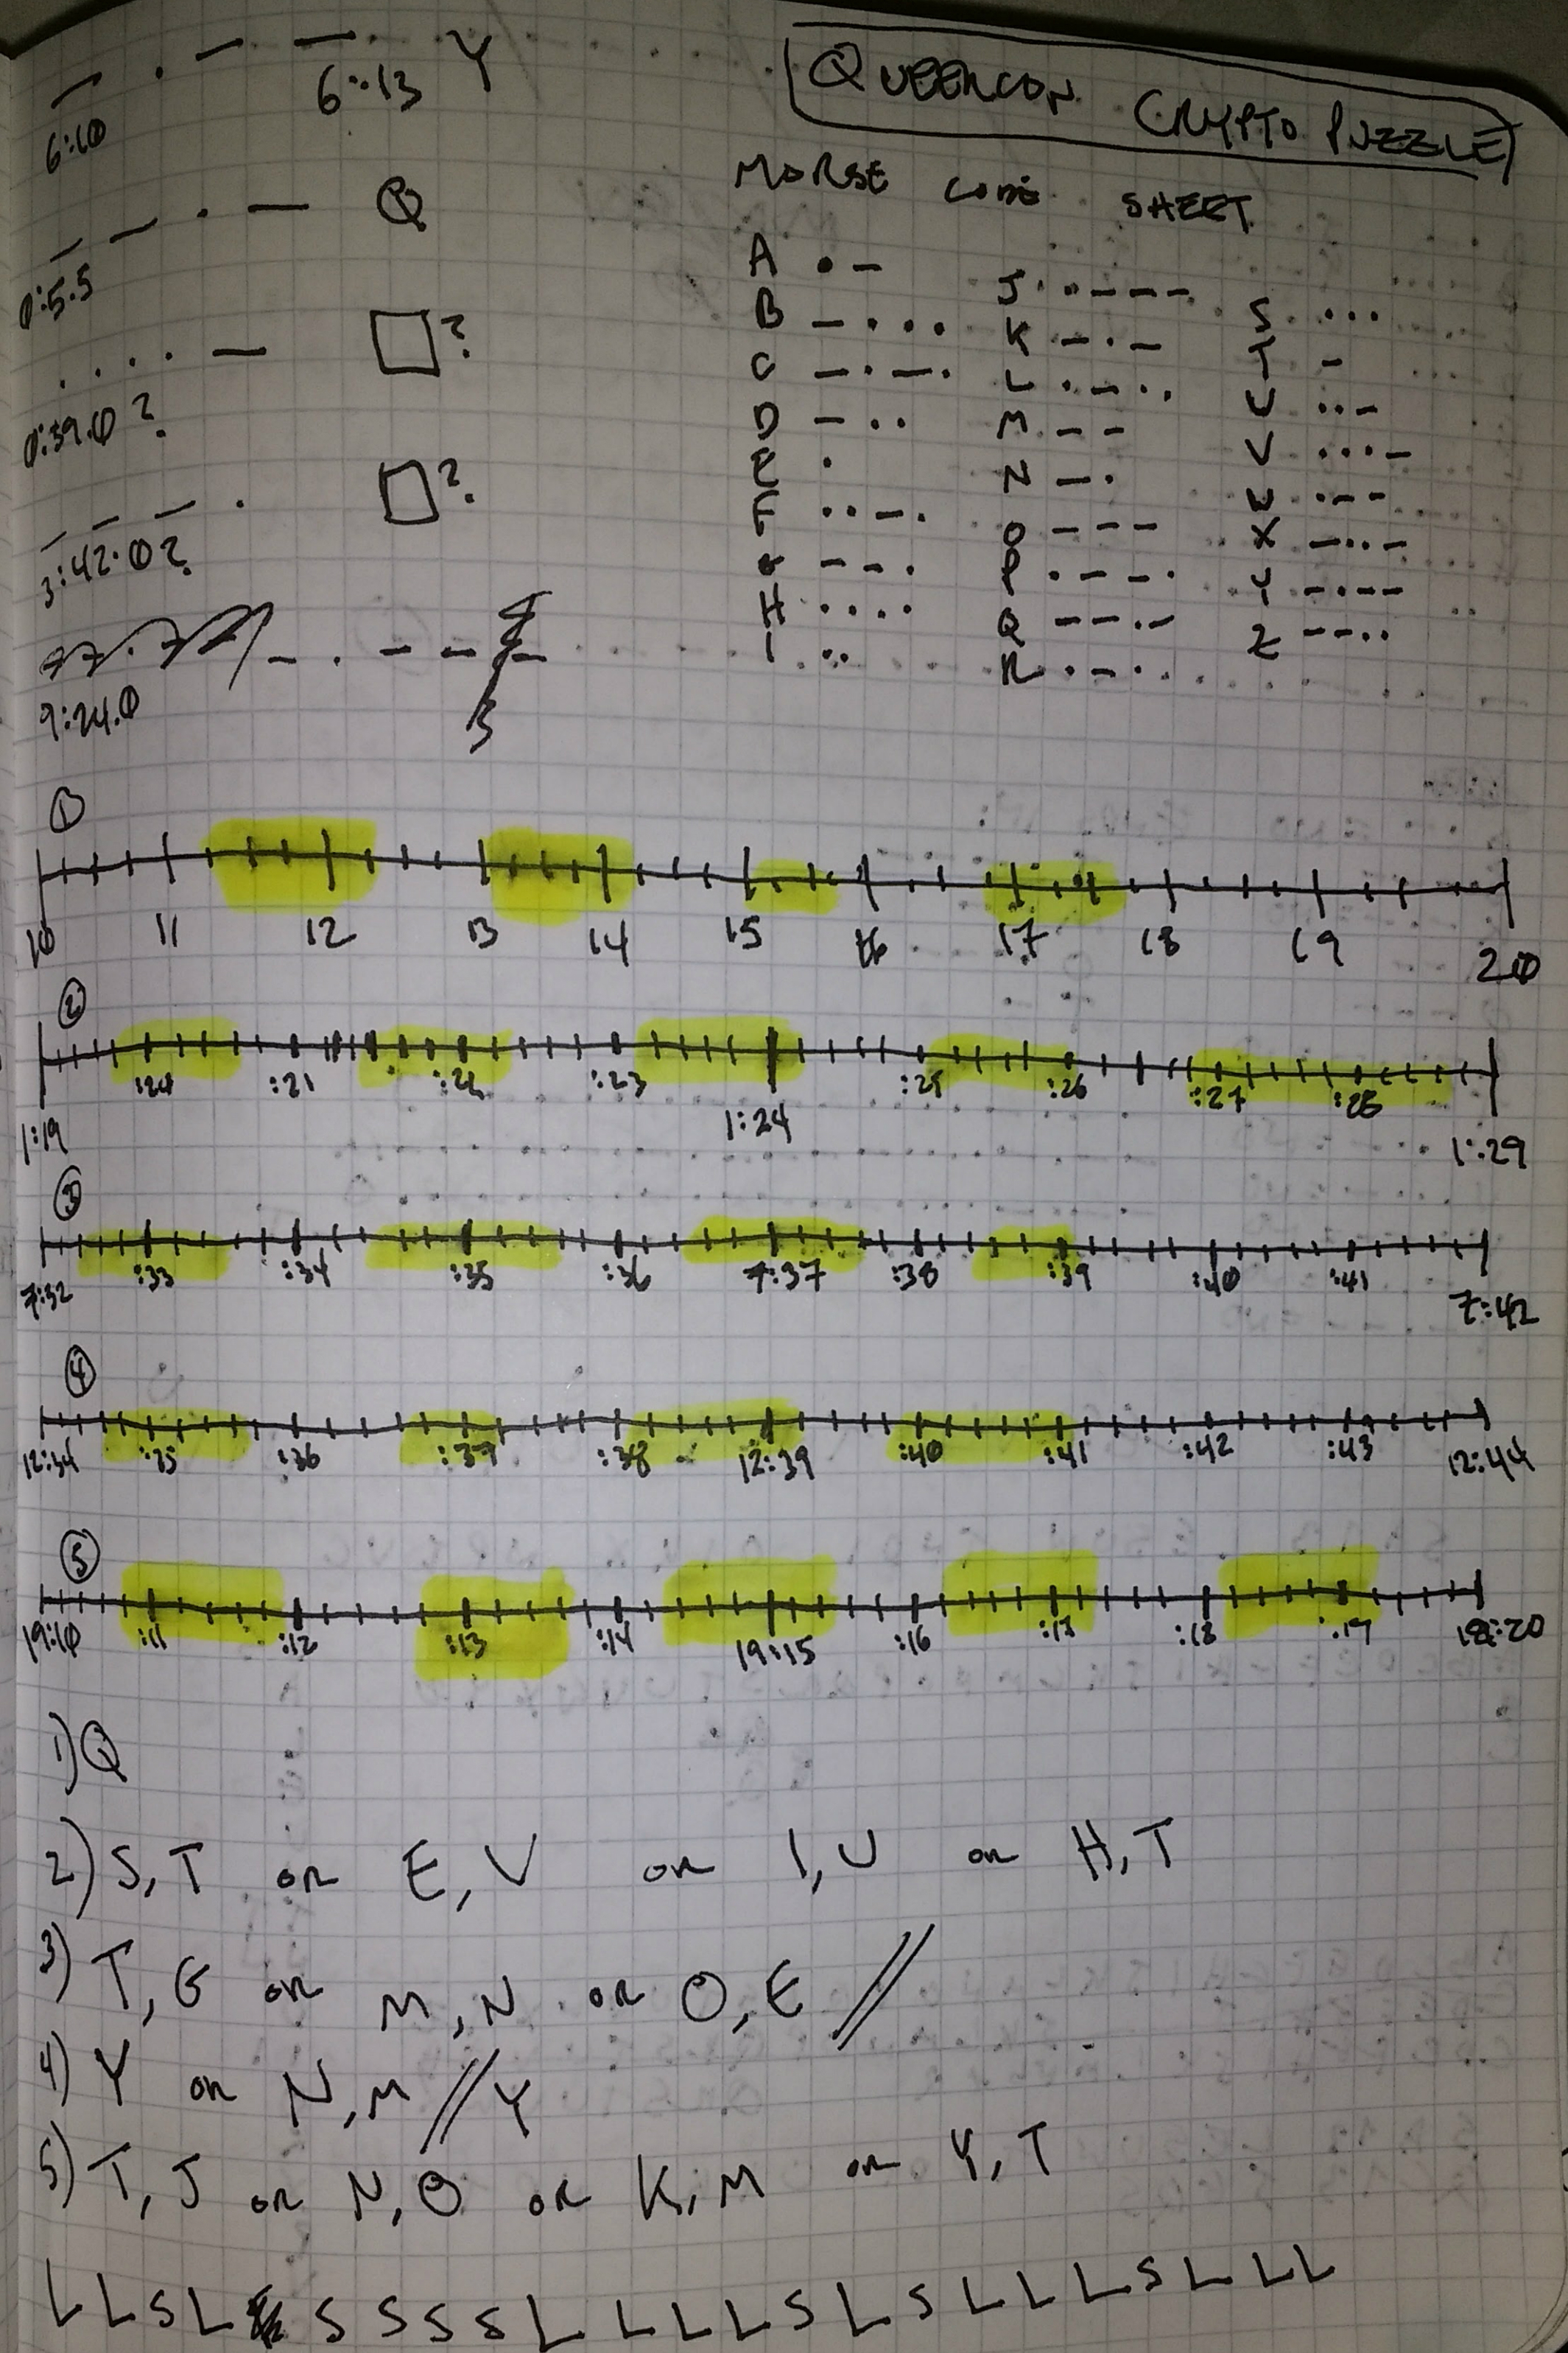 QUEERCON CRYPTO PUZZLE
— · — — Y
6:10 6:13
— — · — Q
0:5.5
· · · · — □?
0:39.0?
— — — · □?
3:42.0?
— · — — —
9:24.0
MORSE CODE SHEET
A · —
B — · · ·
C — · — ·
D — · ·
E ·
F · · — ·
G — — ·
H · · · ·
I · ·
J · — — —
K — · —
L · — · ·
M — —
N — ·
O — — —
P · — — ·
Q — — · —
R · — ·
S · · ·
T —
U · · —
V · · · —
W · — —
X — · · —
Y — · — —
Z — — · ·
①
10 11 12 13 14 15 16 17 18 19 20
②
1:19 :20 :21 :22 :23 1:24 :25 :26 :27 :28 1:29
③
7:32 :33 :34 :35 :36 7:37 :38 :39 :40 :41 7:42
④
12:34 :35 :36 :37 :38 12:39 :40 :41 :42 :43 12:44
⑤
19:10 :11 :12 :13 :14 19:15 :16 :17 :18 :19
1) Q
2) S, T or E, V or I, U or H, T
3) T, G or M, N or O, E //
4) Y or N, M // Y
5) T, J or N, O or K, M or Y, T
L L S L S S S S L L L L S L S L L L S L L L